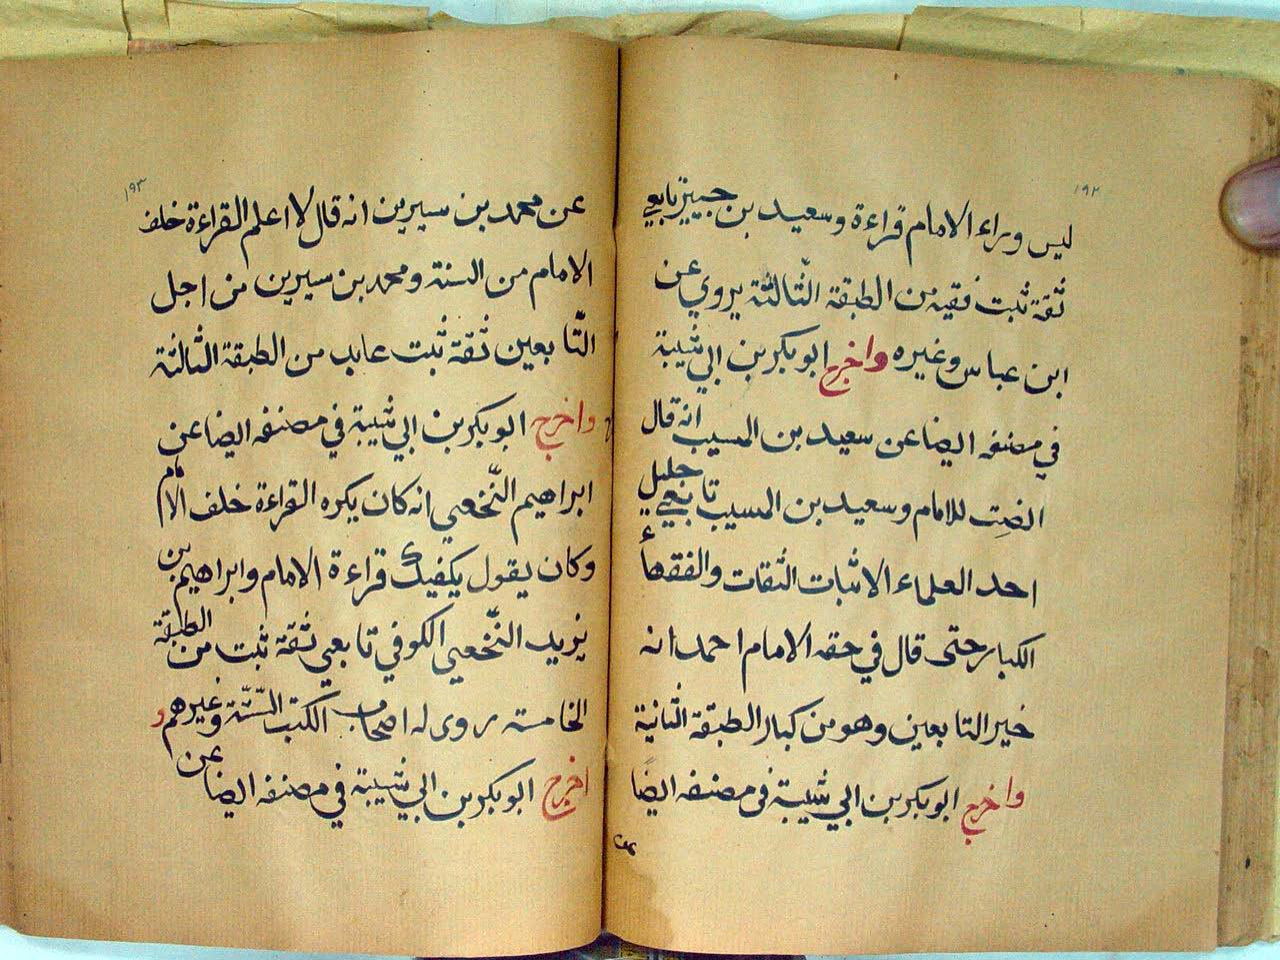 ١٩٢
ليس وراء الامام قراءة وسعيد بن جبير تابعي
ثقة ثبت فقيه من الطبقة الثّالثة يروي عن
ابن عباس وغيره واخرج ابو بكر بن ابي شيبة
في مصنفه ايضا عن سعيد بن المسيب انه قال
انصِت للامام وسعيد بن المسيب تابعي جليل
احد العلماء الاثبات الثقات والفقهاء
الكبار حتى قال في حقه الامام احمد انه
خير التابعين وهو من كبار الطبقة الثانية
واخرج ابو بكر بن ابي شيبة في مصنفه ايضًا
عن
١٩٣
عن محمد بن سيرين انه قال لا اعلم القراءة خلف
الامام من السنة ومحمد بن سيرين من اجل
التّابعين ثقة ثبت عابد من الطبقة الثالثة
واخرج ابو بكر بن ابي شيبة في مصنفه ايضا عن
ابراهيم النّخعي انه كان يكره القراءة خلف الامام
وكان يقول يكفيك قراءة الامام وابراهيم بن
يزيد النّخعي الكوفي تابعي ثقة ثبت من الطبقة
الخامسة روى له اصحاب الكتب السّتّة وغيرهم و
اخرج ابو بكر بن ابي شيبة في مصنفه ايضا عن